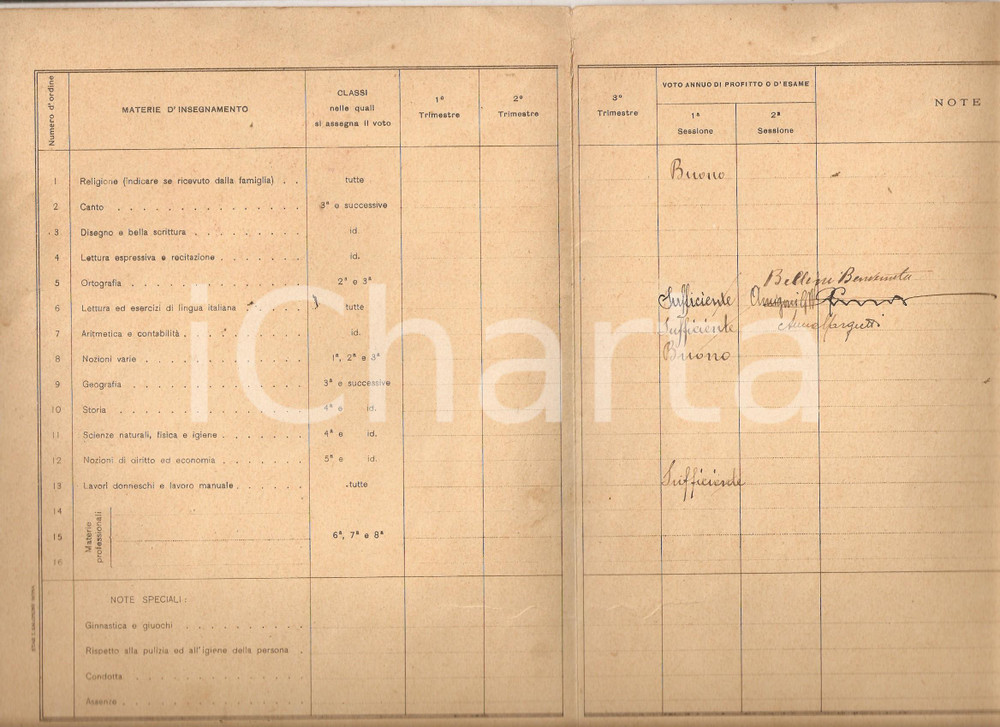 Numero d'ordine
MATERIE D'INSEGNAMENTO
CLASSI
nelle quali
si assegna il voto
1º
Trimestre
2º
Trimestre
3º
Trimestre
VOTO ANNUO DI PROFITTO O D'ESAME
1ª
Sessione
2ª
Sessione
NOTE
1 Religione (indicare se ricevuto dalla famiglia) . . tutte Buono
2 Canto . . . . . . . . . . . . . . . 3ª e successive
3 Disegno e bella scrittura . . . . . . . . . id.
4 Lettura espressiva e recitazione . . . . . . . id.
5 Ortografia . . . . . . . . . . . . . . 2ª e 3ª
Bellini Benvenuta
6 Lettura ed esercizi di lingua italiana . . . . . tutte Sufficiente
7 Aritmetica e contabilità . . . . . . . . . . id. Sufficiente
8 Nozioni varie . . . . . . . . . . . . . 1ª, 2ª e 3ª Buono
9 Geografia . . . . . . . . . . . . . . 3ª e successive
10 Storia . . . . . . . . . . . . . . . 4ª e id.
11 Scienze naturali, fisica e igiene . . . . . . . 4ª e id.
12 Nozioni di diritto ed economia . . . . . . . 5ª e id.
13 Lavori donneschi e lavoro manuale . . . . . . tutte Sufficiente
14
Materie professionali
15 6ª, 7ª e 8ª
16
NOTE SPECIALI:
Ginnastica e giuochi . . . . . . . . . .
Rispetto alla pulizia ed all'igiene della persona .
Condotta . . . . . . . . . . . . . .
Assenze . . . . . . . . . . . . . .
iCharta